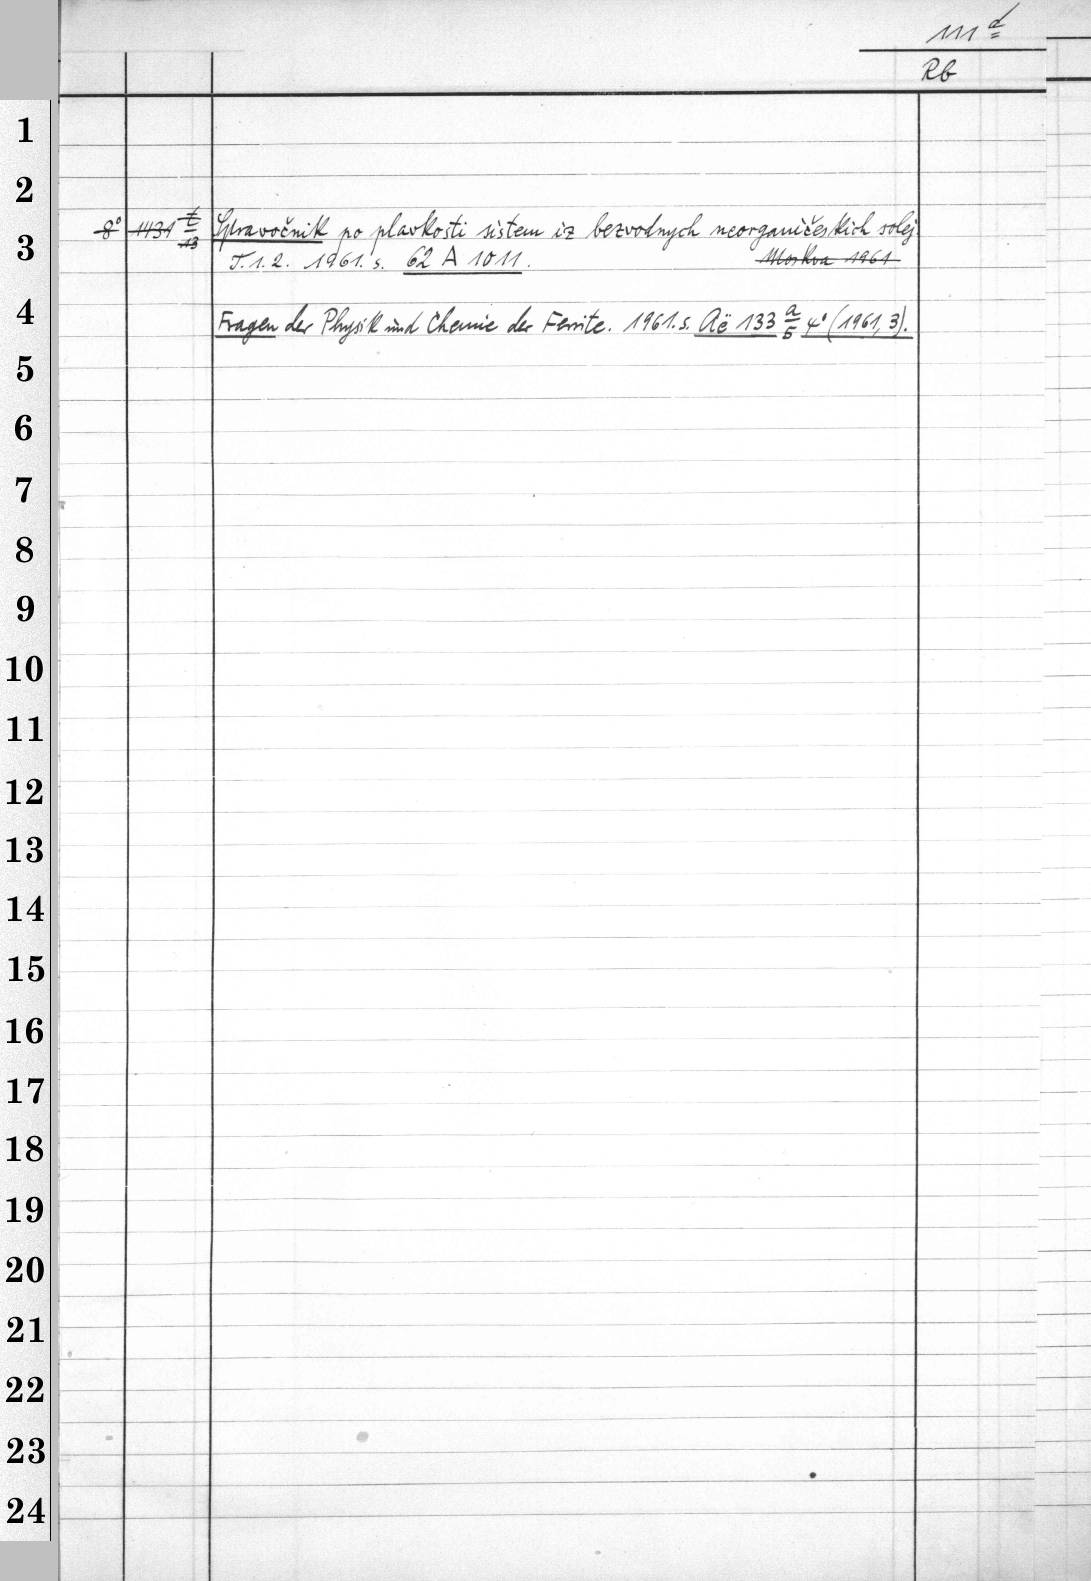 111 d
Rb
1
2
8° 1131 t/13 Spravočnik po plavkosti sistem iz bezvodnych neorganičeskich solej
3
T. 1. 2. 1961. s. 62 A 1011. Moskva 1961
4
Fragen der Physik und Chemie der Ferrite. 1961. s. Aë 133 a/5 4° (1961,3).
5
6
7
8
9
10
11
12
13
14
15
16
17
18
19
20
21
22
23
24